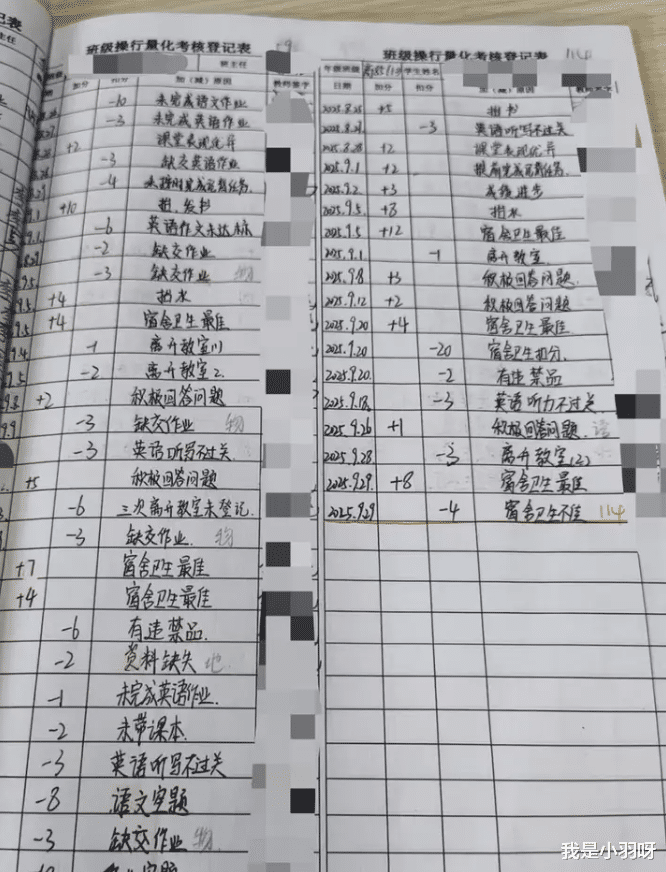 班级操行量化考核登记表
班主任
加分 扣分 加（减）原因 教师签字
-10 未完成语文作业
-3 未完成英语作业
+2 课堂表现优异
-3 缺交英语作业
-4
+10 捐、发书
-6 英语作文未达标
-2 缺交作业
-3 缺交作业 物
+4 捐水
+4 宿舍卫生最佳
-1 离开教室
-2 离开教室2
+2 积极回答问题
-3 缺交作业 物
-3 英语听写不过关
+5 积极回答问题
-6 三次离开教室未登记
-3 缺交作业 物
+7 宿舍卫生最佳
+4 宿舍卫生最佳
-6 有违禁品
-2 资料缺失 地
-1 未完成英语作业
-2 未带课本
-3 英语听写不过关
-8 语文空题
-3 缺交作业 物
班级操行量化考核登记表 114
年级班级 学生姓名
日期 加分 扣分 加（减）原因
2025.8.25 +5 捐书
2025.8.27 -3 英语听写不过关
2025.8.28 +2 课堂表现优异
2025.9.1 +2
2025.9.2 +3 成绩进步
2025.9.5 +8 捐水
2025.9.5 +12 宿舍卫生最佳
2025.9.1 -1 离开教室
2025.9.8 +3 积极回答问题
2025.9.12 +2 积极回答问题
2025.9.20 +4 宿舍卫生最佳
2025.9.20 -20 宿舍卫生扣分
2025.9.20 -2 有违禁品
2025.9.18 -3 英语听力不过关
2025.9.26 +1 积极回答问题 语
2025.9.28 -3 离开教室(2)
2025.9.29 +8 宿舍卫生最佳
2025.9.29 -4 宿舍卫生不佳 114
我是小羽呀